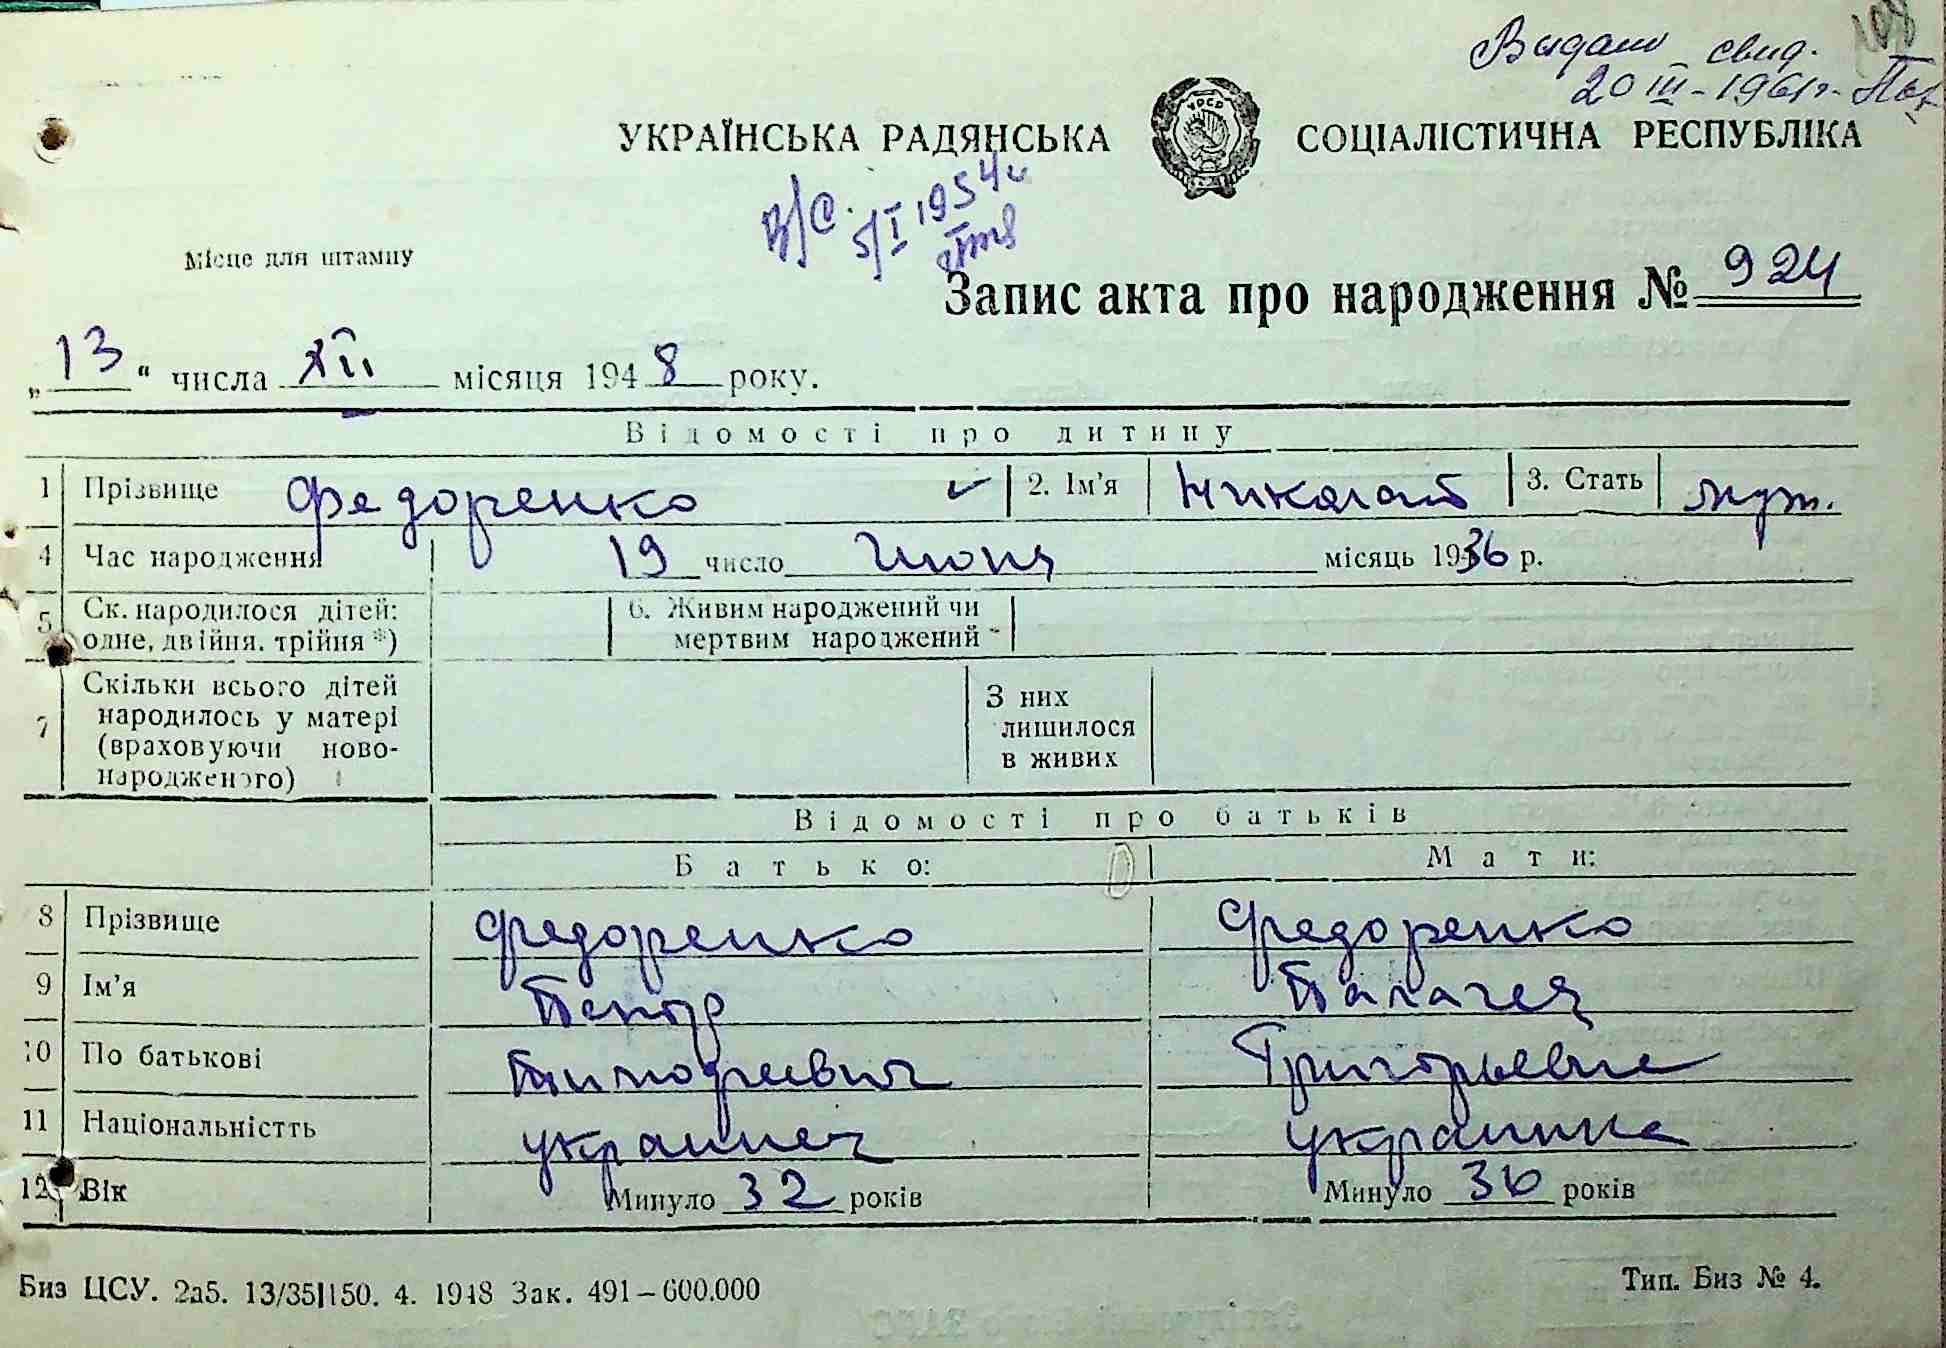 108
Выдано свид.
20 III - 1961 г.
УКРАЇНСЬКА РАДЯНСЬКА СОЦІАЛІСТИЧНА РЕСПУБЛІКА
УРСР
В/С. 5/I 1954 г.
Місце для штампу
Запис акта про народження № 924
„13“ числа XII місяця 1948 року.
Відомості про дитину
1 Прізвище Федоренко 2. Ім’я Николай 3. Стать муж.
4 Час народження 19 число Июня місяць 1936 р.
5 Ск. народилося дітей: 6. Живим народжений чи
одне, двійня. трійня *) мертвим народжений
7 Скільки всього дітей З них
народилось у матері лишилося
(враховуючи ново- в живих
народженого)
Відомості про батьків
Батько: Мати:
8 Прізвище Федоренко Федоренко
9 Ім’я Петр Палагея
10 По батькові Тимофеевич Григорьевна
11 Національністть украинец украинка
12 Вік Минуло 32 років Минуло 36 років
Биз ЦСУ. 2а5. 13/35|150. 4. 1948 Зак. 491–600.000 Тип. Биз № 4.